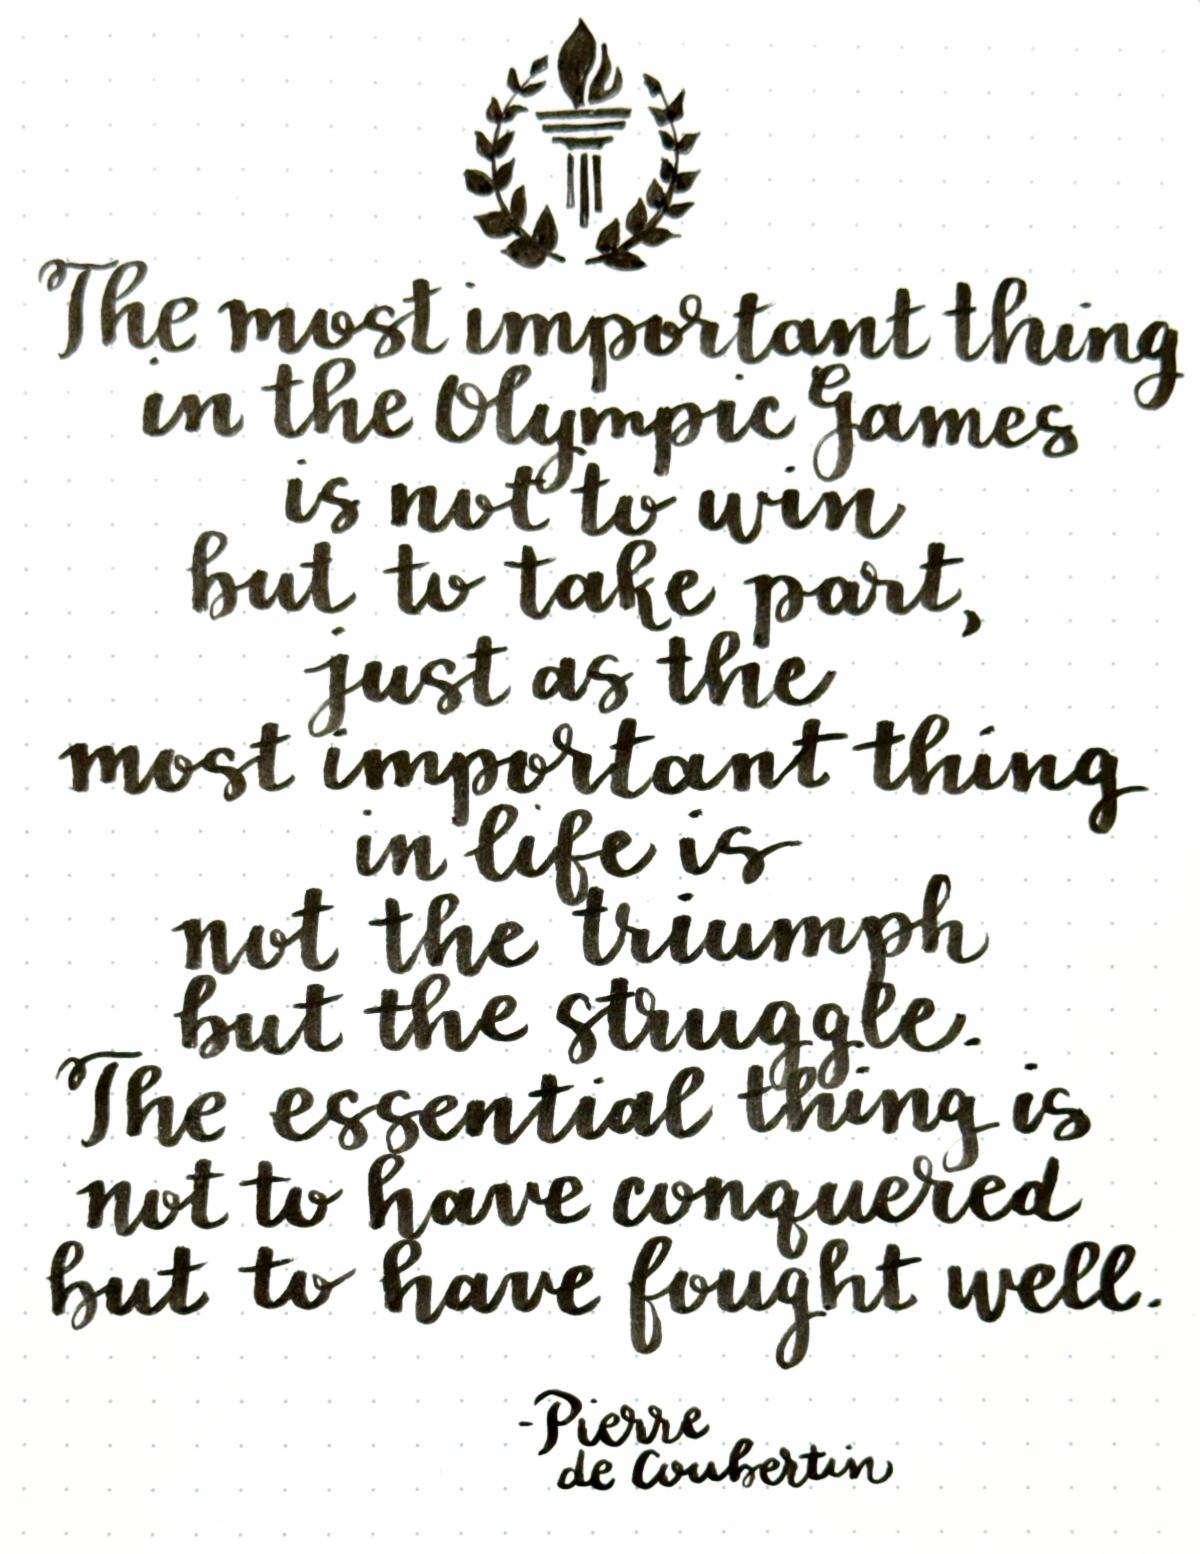 The most important thing
in the Olympic Games
is not to win
but to take part,
just as the
most important thing
in life is
not the triumph
but the struggle.
The essential thing is
not to have conquered
but to have fought well.
-Pierre
de Coubertin